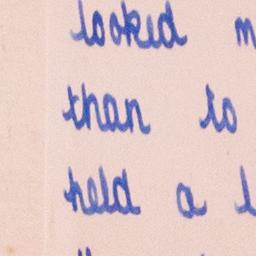 looked
than to
held a